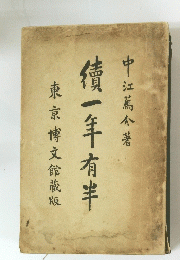 中江篤介著
續一年有半
東京博文館藏版